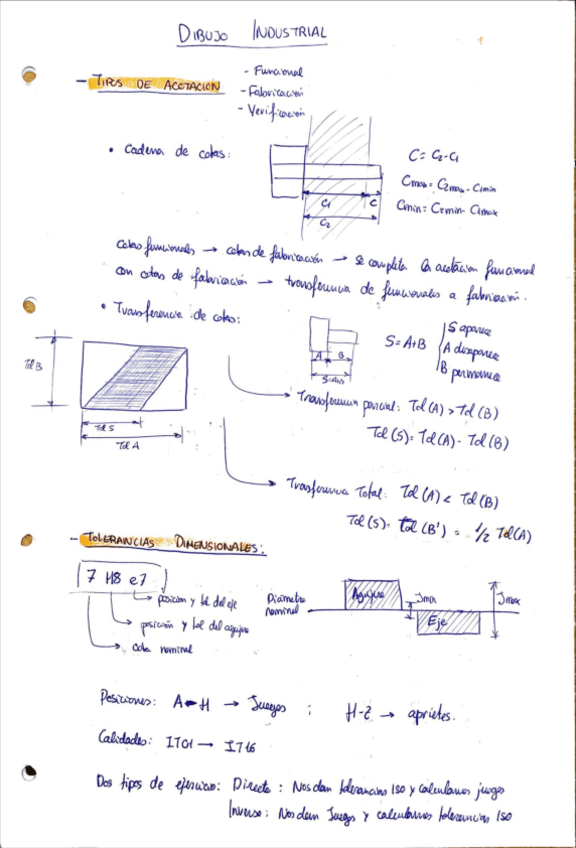 DIBUJO INDUSTRIAL
1
- TIPOS DE ACOTACION
- Funcional
- Fabricación
- Verificación
• Cadena de cotas:
C = C2 - C1
Cmax = C2max - C1min
Cmin = C2min - C1max
C1
C
C2
Cotas funcionales → cotas de fabricación → se completa la acotacion funcional
con cotas de fabricación → transferencia de funcionales a fabricación.
• Transferencia de cotas:
S = A+B
S aparece
A desaparece
B permanece
A
B
Tol B
Tol S
Tol A
Transferencia parcial: Tol (A) > Tol (B)
Tol (S) = Tol (A) - Tol (B)
Transferencia Total: Tol (A) < Tol (B)
Tol (S) = Tol (B') = 1/2 Tol (A)
- TOLERANCIAS DIMENSIONALES:
7 H8 e7
posicion y tol del eje
posición y tol del agujero
cota nominal
Diámetro
nominal
Agujero
Jmin
Eje
Jmax
Posiciones: A-H → Juegos ; H-Z → aprietes.
Calidades: IT01 → IT16
Dos tipos de ejercicios: Directo : Nos dan tolerancias ISO y calculamos juegos
Inverso : Nos dan Juegos y calculamos tolerancias ISO